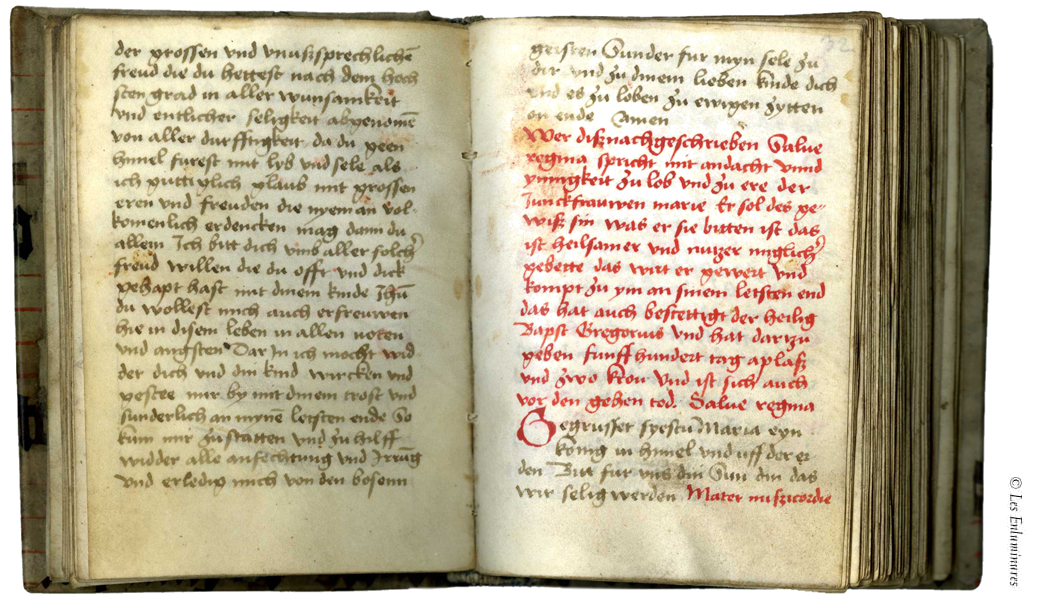 der grossen vnd vnusssprechlichē
freud die du hettest nach dem hoch
sten grad in aller wunsamkeit
vnd entlicher seligkeit abgenomē
von aller durfftigkeit da du geen
himel furest mit lyb vnd sele als
ich gutticlich glaub mit grossen
eren vnd freuden die nyeman vol-
komenlich erdencken mag dann du
allein Ich bitt dich vmb aller solch
freud willen die du offt vnd dick
gehapt hast mit dinem kinde Ihū
du wollest mich auch erfreuwen
hie in disem leben in allen noten
vnd angsten Dar In ich mocht wid
der dich vnd din kind wircken vnd
gestee mir by mit dinem trost vnd
sunderlich an mynē letsten ende So
kum mir zu statten vnd zu hilff
widder alle anfechtung vnd Irrūg
vnd erledig mich von den bosenn
32
geisten Sunder fur myn sele zu
dir vnd zu dinem lieben kinde dich
vnd es zu loben zu ewigen zytten
on ende Amen
Wer dissnachgeschrieben Salue
regina spricht mit andacht vnnd
ynnigkeit zu lob vnd zu ere der
Junckfrauwen marie Er sol des ge-
wiss sin was er sie bitten ist das
ist heilsamer vnd nutzer miglich
gebette das wirt er gewert vnd
kompt zu ym an sinem letsten end
das hat auch bestettigt der heilig
Bapst Gregorius vnd hat dartzu
geben funff hundert tag aplass
vnd zwo kron Vnd ist sich auch
vor den gehen tod. Salue regina
Gegrusset syestu Maria eyn
konig in himel vnd vff der er
den Bit fur vns din Sun din das
wir selig werden Mater misericordie
© Les Enluminures